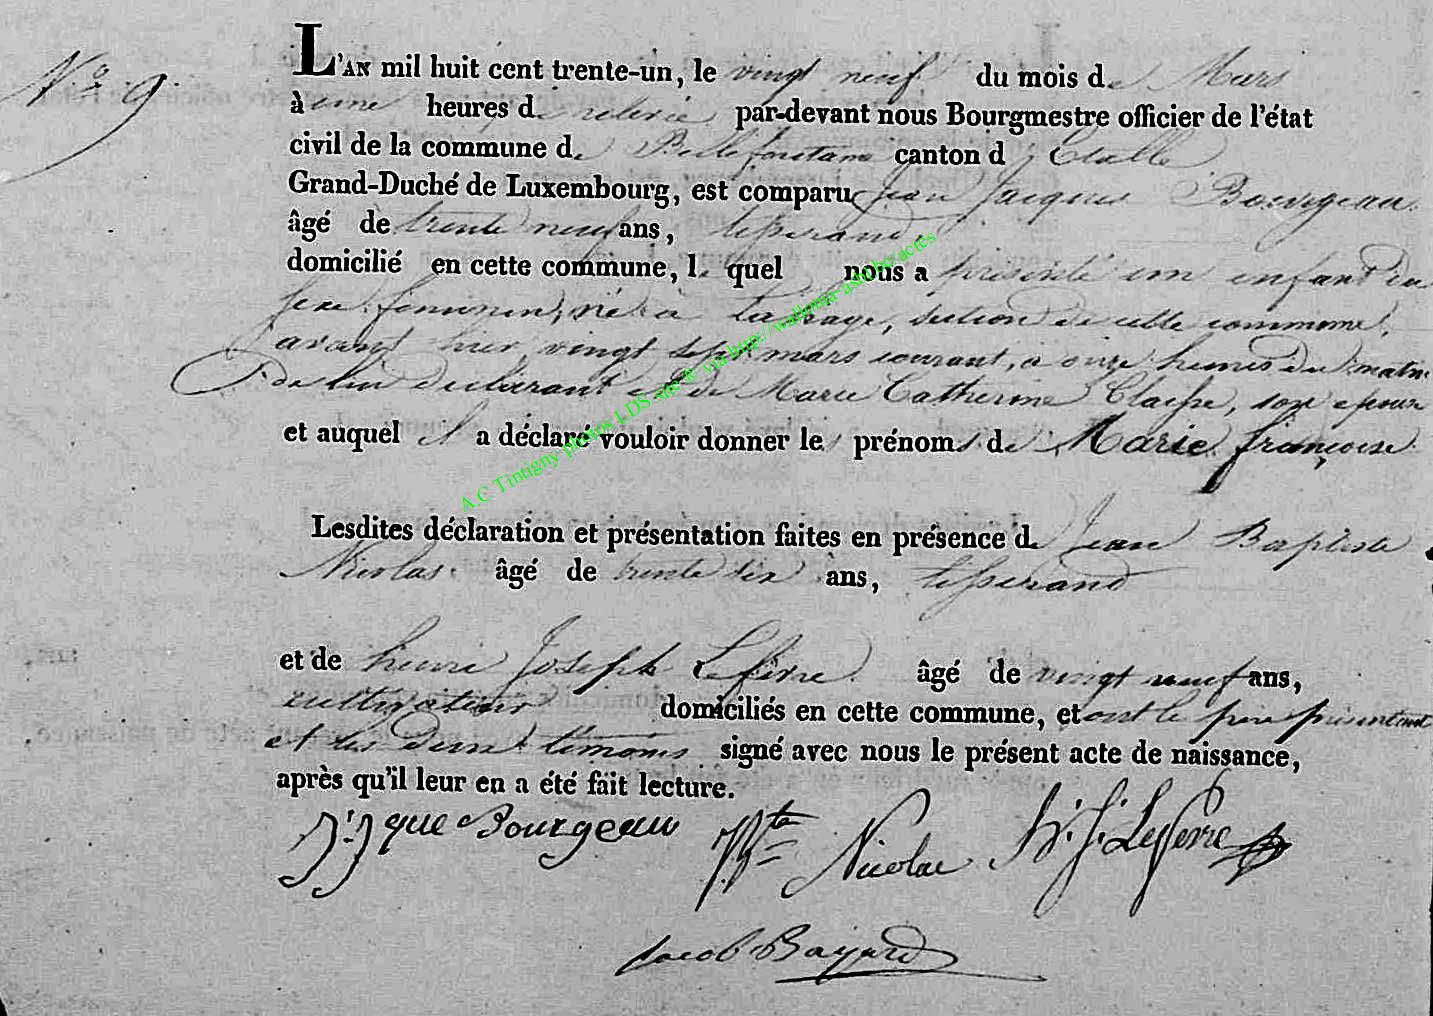 N.° 9.
L'AN mil huit cent trente-un, le vingt neuf du mois de Mars
à une heures de relevée par-devant nous Bourgmestre officier de l'état
civil de la commune de Bellefontaine canton d'Etalle
Grand-Duché de Luxembourg, est comparu Jean Jacques Bourgeau.
âgé de trente neuf ans, tisserand,
domicilié en cette commune, le quel nous a présenté un enfant du
sexe féminin, né à Lahage, section de cette commune,
avant hier vingt sept mars courant, a onze heures du matin
de lui déclarant et de Marie Catherine Claisse, son epouse
et auquel il a déclaré vouloir donner les prénoms de Marie françoise.
Lesdites déclaration et présentation faites en présence de Jean Baptiste
Nicolas. âgé de trente six ans, tisserand
et de henri Joseph Lefèvre âgé de vingt neuf ans,
cultivateur domiciliés en cette commune, et ont le père présentant
et les deux témoins signé avec nous le présent acte de naissance,
après qu'il leur en a été fait lecture.
J: J que Bourgeau J Bte Nicolas h. j. Lefevre
Jacob Bayard
A.C Tintigny photos LDS site & via http://wallonia-asbl.be/actes